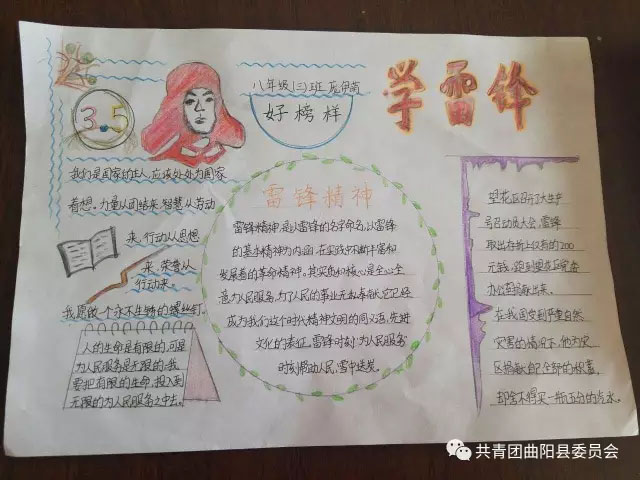 学雷锋
3.5
八年级(三)班
好榜样
我们是国家的主人,应该处处为国家
着想。力量从团结来,智慧从劳动
来,行动从思想
来,荣誉从
行动来。
我愿做一个永不生锈的螺丝钉。
人的生命是有限的,可是
为人民服务是无限的,我
要把有限的生命,投入到
无限的为人民服务之中去。
雷锋精神
雷锋精神,是以雷锋的名字命名,以雷锋
的基本精神为内涵,在实践中不断丰富和
发展着的革命精神。其实质和核心是全心全
意为人民服务,为了人民的事业无私奉献,它已经
成为我们这个时代精神文明的同义语,先进
文化的表征。雷锋时刻为人民服务
时刻帮助人民,雪中送炭。
望花区召开了大生产
号召动员大会,雷锋
取出存折上仅有的200
元钱,跑到望花区党委
办公室捐献出来。
在我国受到严重自然
灾害的情况下,他为灾
区捐献自己全部的积蓄,
却舍不得买一瓶五分的汽水。
共青团曲阳县委员会